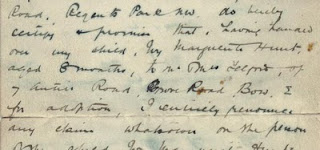 Road, Regents Park NW. do hereby
certify & promise that, having handed
over my child, Ivy Marguerite Hunt,
aged 8 months, to Mr Mrs Telford, of
7 Road, Road Bow, E
for adoption, I entirely renounce
any claim whatsoever on the person
child Ivy